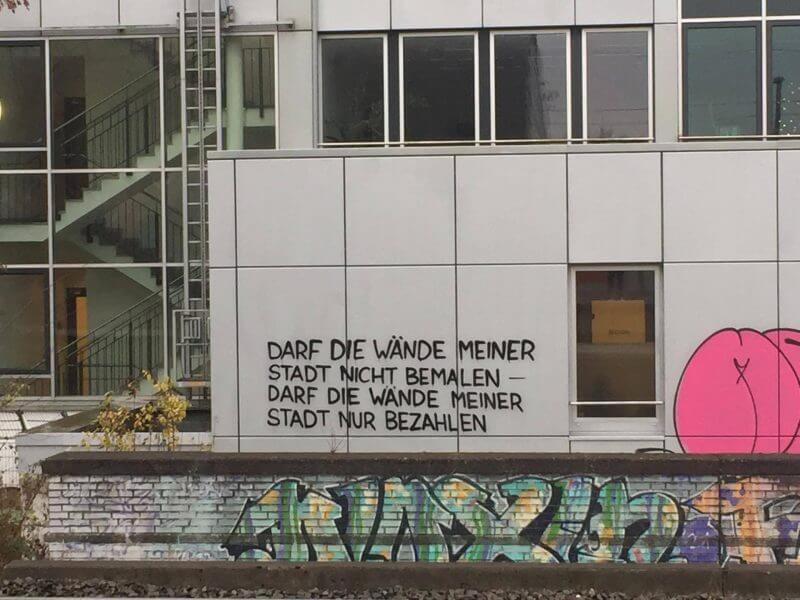 DARF DIE WÄNDE MEINER
STADT NICHT BEMALEN –
DARF DIE WÄNDE MEINER
STADT NUR BEZAHLEN